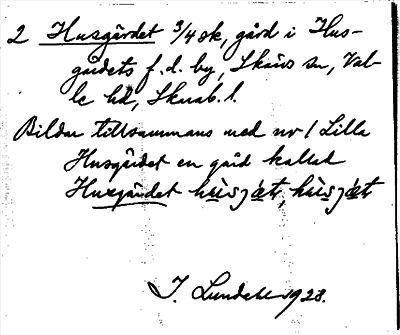 2 Husgärdet 3/4 sk, gård i Hus-
gärdets f. d. by, Skärvs sn, Val-
le hd, Skarab. l.
Bildar tillsammans med nr 1 Lilla
Husgärdet en gård kallad
Husgärdet
J. Lundahl 1928.